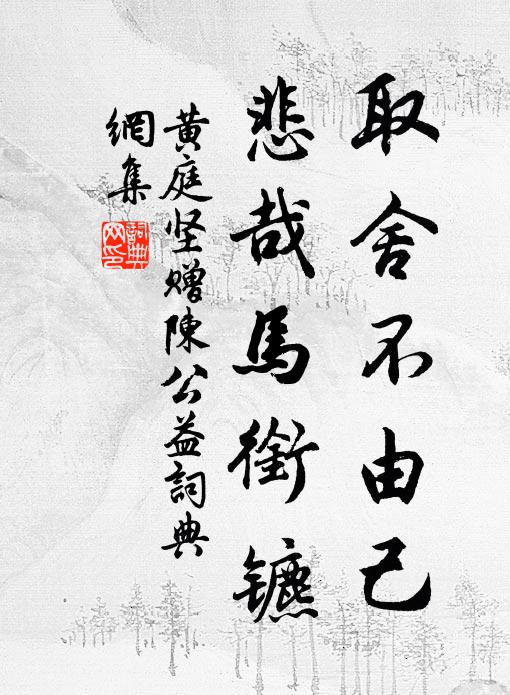 取舍不由己
悲哉馬銜鑣
黄庭坚贈陳公益詞典
網集
詞典
网印